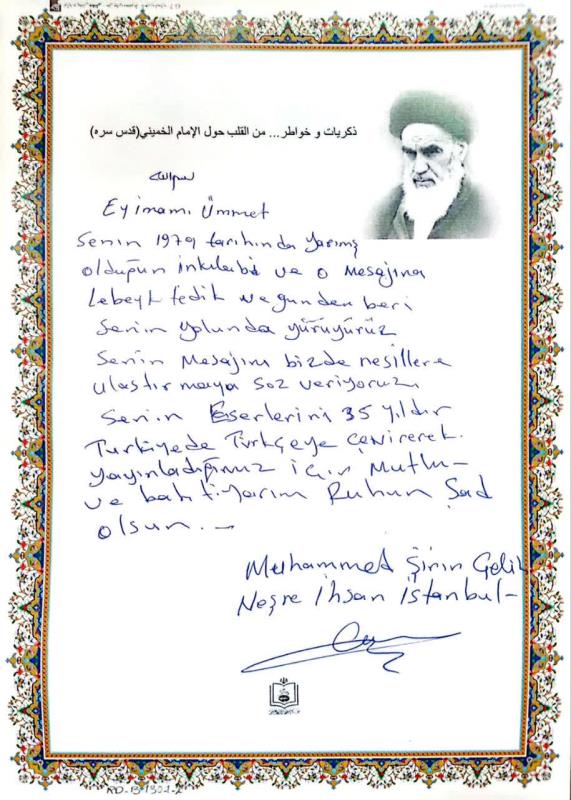 ذكريات و خواطر ... من القلب حول الإمام الخميني(قدس سره)
بسم الله
Ey imamı Ümmet
Senin 1979 tarihinda yarımş
olduğun inkılabı ve o Mesajına
Lebeyk fedik ve gunden beri
Senin yolunda yürüyürüz
Senin Mesajını bizde nesillere
ulaştırmaya söz veriyoruz
Senin Eserlerini 35 yıldır
Türkiyede Türkçeye çevirerek
yayınladığımız için Mutlu-
ve bahtiyarım Ruhun Şad
olsun. -
Muhammet Şirin Çelik
Neşre ihsan istanbul-
RD-B-1301-2